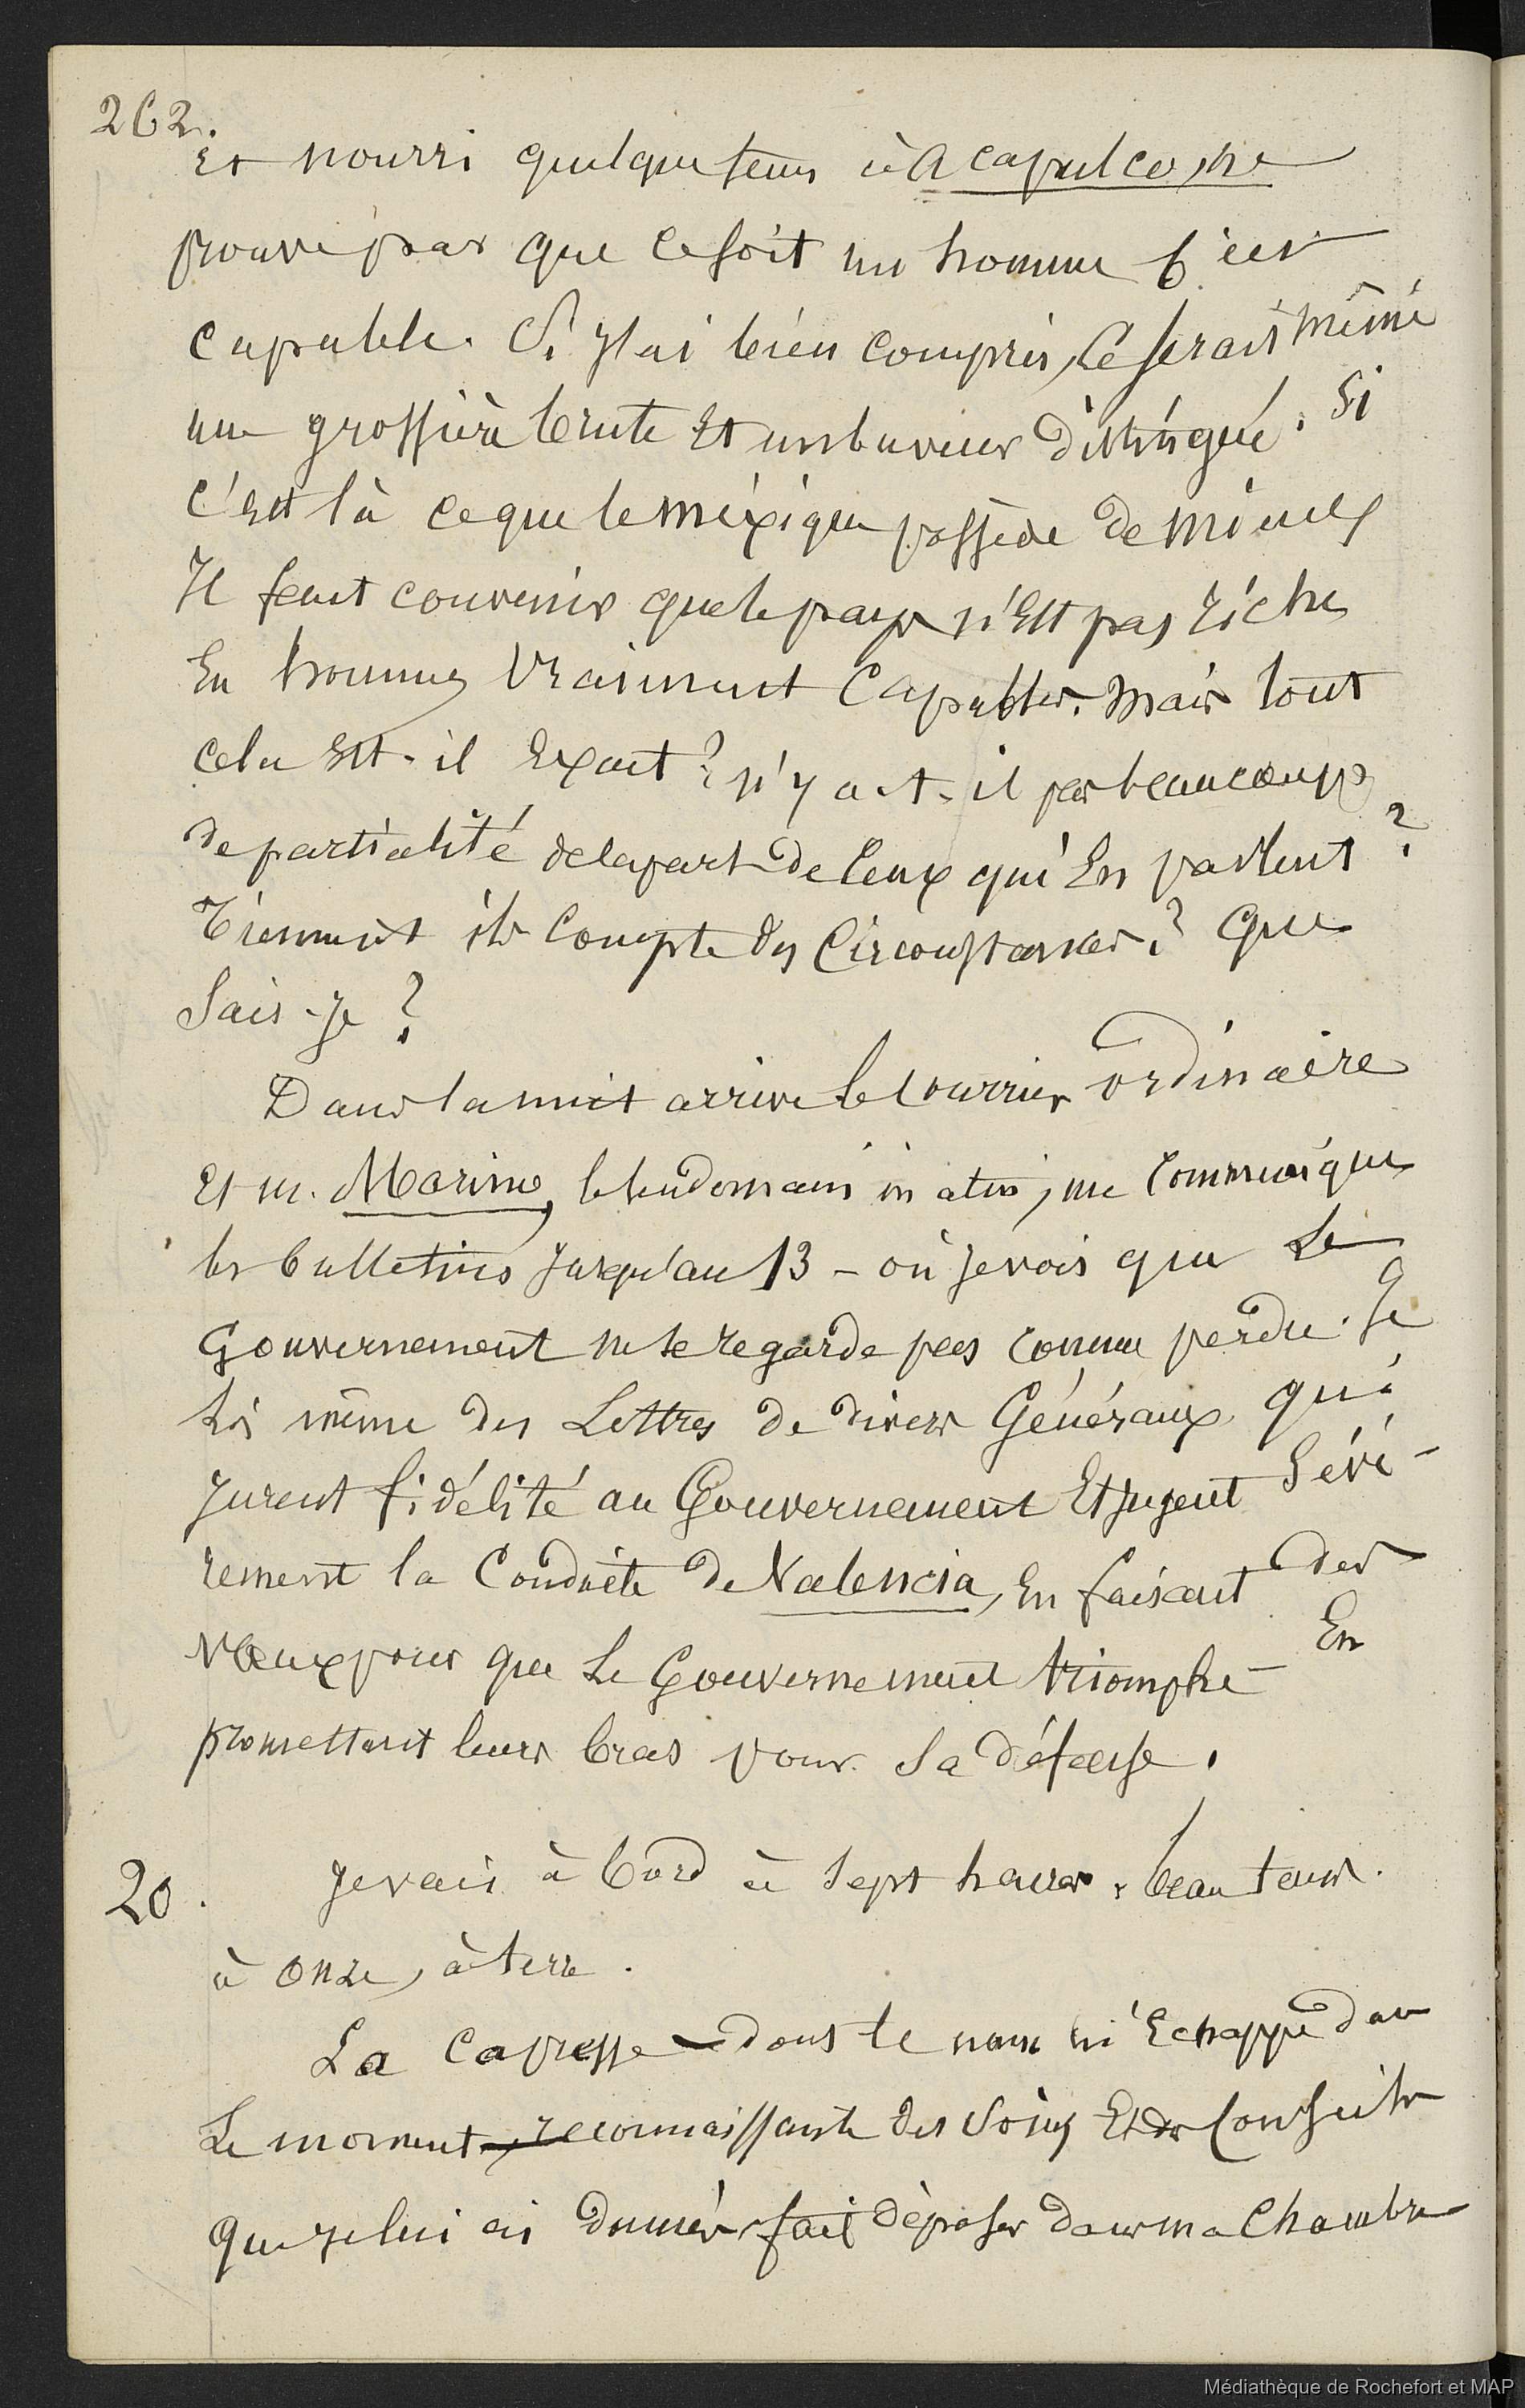 262.
Et nourri quelque tems à Acapulco, ne
prouve pas que ce soit un homme bien
capable. Si j'ai bien compris, ce serait même
une grossière brute et un buveur distingué. Si
c'est là ce que le méxique possède de mieux
Il faut convenir que le pays n'est pas riche
En hommes vraiment capables. Mais tout
cela est-il exact? n'y a-t-il pas beaucoup
de partialité de la part de ceux qui En parlent?
Tiennent ils compte des circonstances? Que
sais-je?
Dans la nuit arrive le courrier ordinaire
Et m. Marino, le lendemain matin, me communique
les bulletins jusqu'au 13 - où je vois que Le
Gouvernement ne se regarde pas comme perdu. Je
lis même des Lettres de divers Généraux qui
jurent fidélité au Gouvernement Et jugent sévè-
rement la Conduite de Valencia, En faisant des
vœux pour que Le Gouvernement triomphe - En
promettant leurs bras pour sa défense.
20. Je vais à bord à sept heures. beau tems.
à onze, à terre.
La capresse - dont le nom m'Echappe dans
Le moment - reconnaissante des soins Et des conseils
que je lui ai donnés, fait déposer dans ma Chambre
Médiathèque de Rochefort et MAP